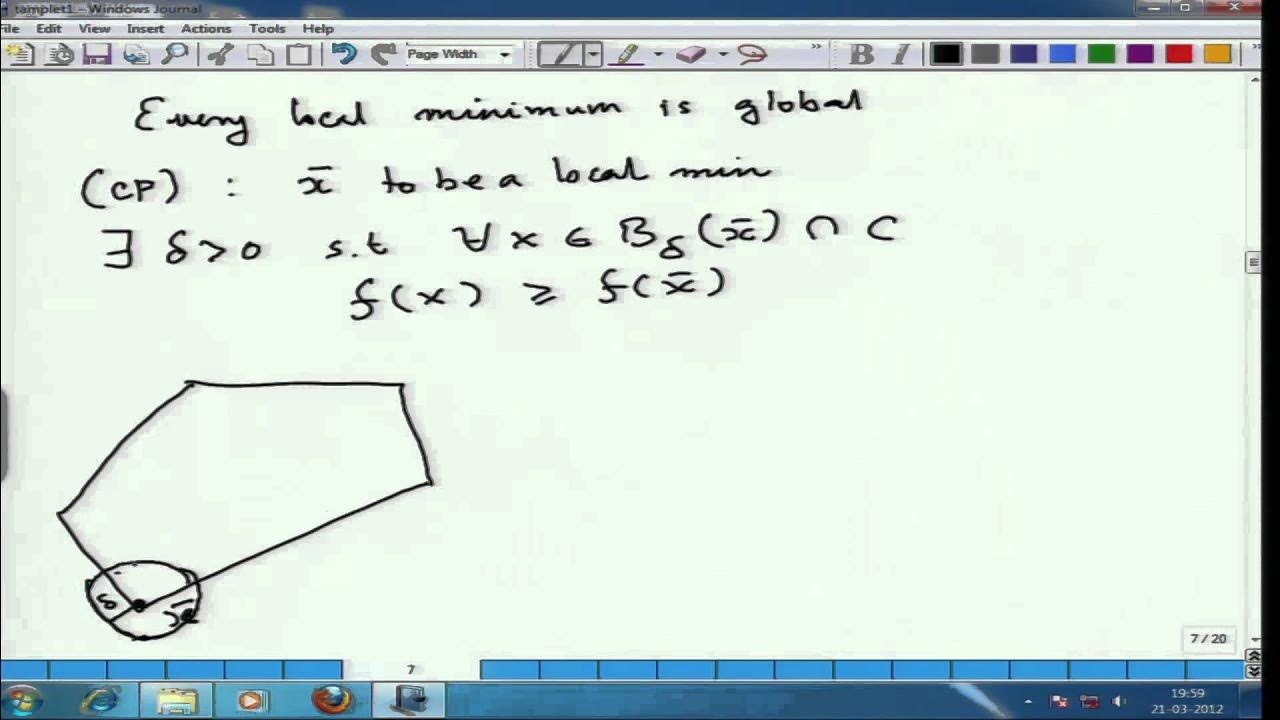 tamplet1 - Windows Journal
File Edit View Insert Actions Tools Help
Page Width
B I
Every local minimum is global
(CP) : x̄ to be a local min
∃ δ > 0 s.t ∀ x ∈ B_δ(x̄) ∩ C
f(x) ≥ f(x̄)
δ x̄
7 / 20
7
19:59
21-03-2012